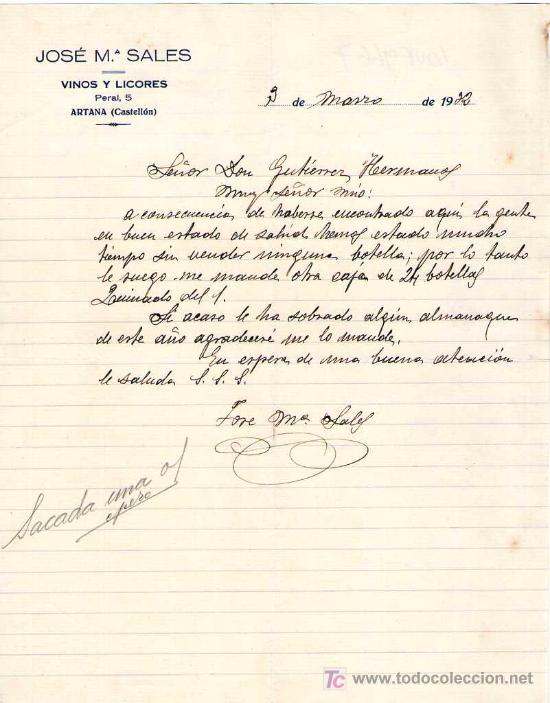 JOSÉ M.ª SALES
VINOS Y LICORES
Peral, 5
ARTANA (Castellón)
3 de Marzo de 1932
Señor Don Gutiérrez Hermanos
Muy Señor mio:
a consecuencia de haberse encontrado aquí la gente
en buen estado de salud hemos estado mucho
tiempo sin vender ninguna botella; por lo tanto
le ruego me mande otra caja de 24 botellas
Quinado del 1.
Si acaso le ha sobrado algún almanaque
de este año agradeceré me lo mande.
En espera de una buena atención
le saluda S. S. S.
Jose Mª Sales
Sacada una
TC www.todocoleccion.net